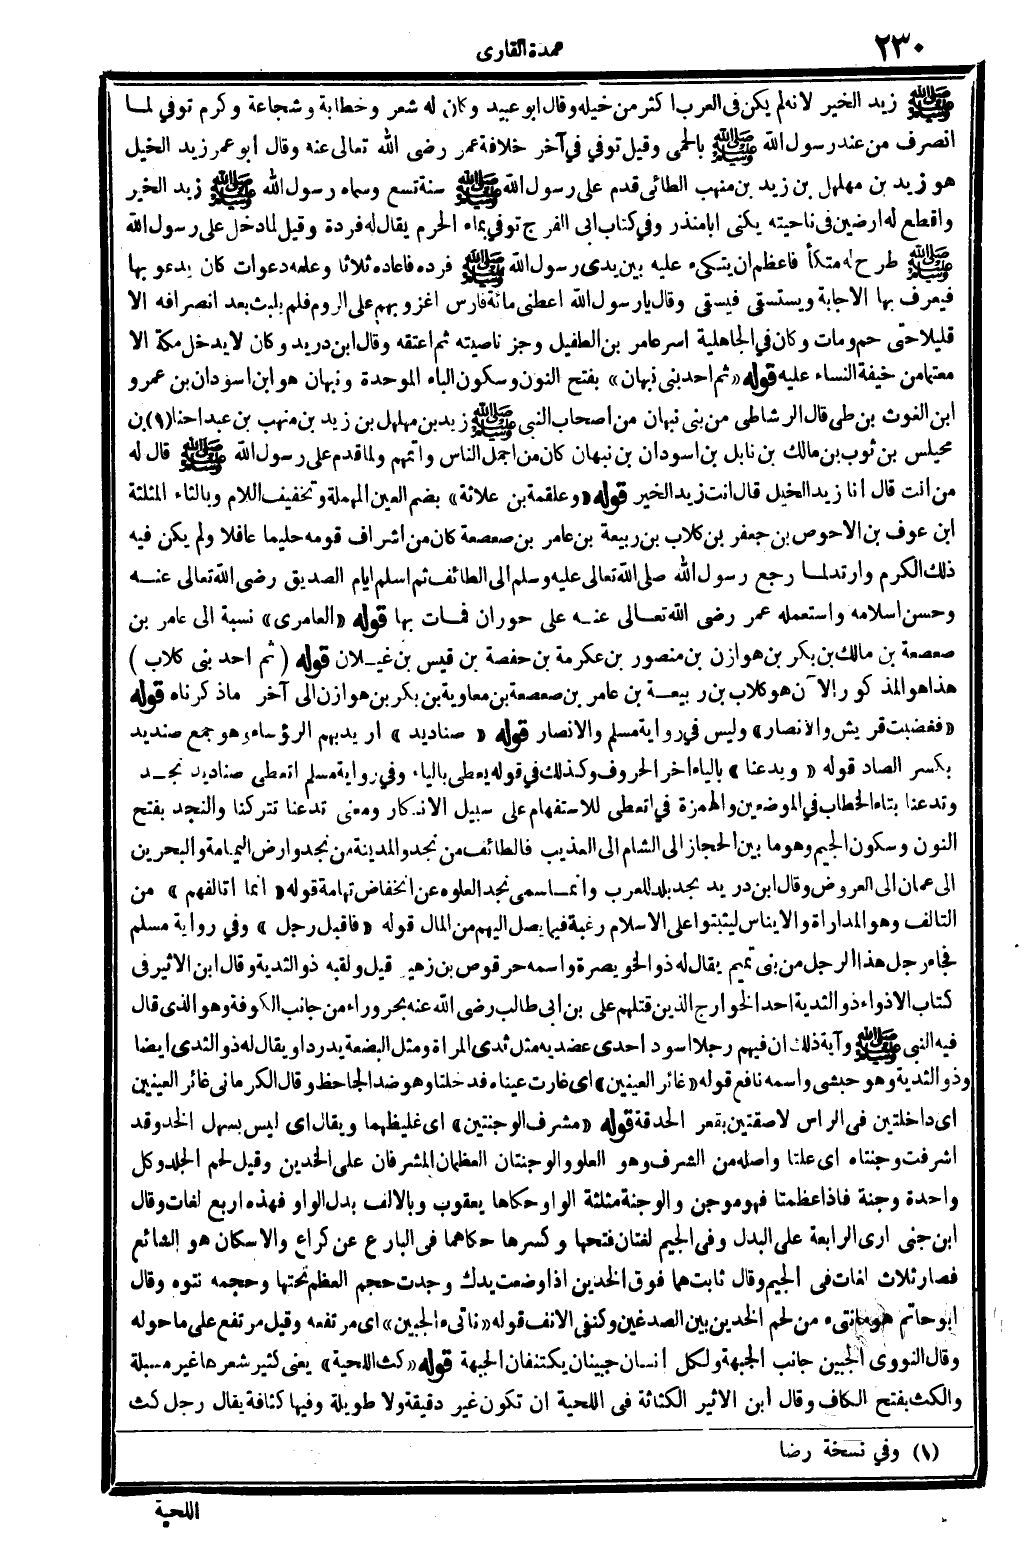 ٢٣٠
عمدة القارى
ﷺ زيد الخير لانه لم يكن فى العرب اكثر من خيله وقال ابو عبيد وكان له شعر وخطابة وشجاعة وكرم توفي لما
انصرف من عند رسول الله ﷺ بالحمى وقيل توفي في آخر خلافة عمر رضى الله تعالى عنه وقال ابو عمر زيد الخيل
هو زيد بن مهلهل بن زيد بن منهب الطائى قدم على رسول الله ﷺ سنة تسع وسماه رسول الله ﷺ زيد الخير
واقطع له ارضين فى ناحيته يكنى ابا منذر وفي كتاب ابى الفرج توفي بماء الحرم يقال له فردة وقيل لما دخل على رسول الله
ﷺ طرح له متكأ فاعظم ان يتكىء عليه بين يدى رسول الله ﷺ فرده فاعاده ثلاثا وعلمه دعوات كان يدعو بها
فيعرف بها الاجابة ويستسقى فيسقى وقال يا رسول الله اعطنى مائة فارس اغزو بهم على الروم فلم يلبث بعد انصرافه الا
قليلا حتى حم ومات وكان في الجاهلية اسر عامر بن الطفيل وجز ناصيته ثم اعتقه وقال ابن دريد وكان لا يدخل مكة الا
معتما من خيفة النساء عليه قوله «ثم احد بنى نبهان» بفتح النون وسكون الباء الموحدة ونبهان هو ابن اسودان بن عمرو
ابن الغوث بن طى قال الرشاطى من بنى نبهان من اصحاب النبى ﷺ زيد بن مهلهل بن زيد بن منهب بن عبد احنا(١) بن
محيلس بن ثوب بن مالك بن نابل بن اسودان بن نبهان كان من اجمل الناس واتمهم ولما قدم على رسول الله ﷺ قال له
من انت قال انا زيد الخيل قال انت زيد الخير قوله «وعلقمة بن علاثة» بضم العين المهملة وتخفيف اللام وبالثاء المثلثة
ابن عوف بن الاحوص بن جعفر بن كلاب بن ربيعة بن عامر بن صعصعة كان من اشراف قومه حليما عاقلا ولم يكن فيه
ذلك الكرم وارتد لما رجع رسول الله صلى الله تعالى عليه وسلم الى الطائف ثم اسلم ايام الصديق رضى الله تعالى عنه
وحسن اسلامه واستعمله عمر رضى الله تعالى عنه على حوران فمات بها قوله «العامرى» نسبة الى عامر بن
صعصعة بن مالك بن بكر بن هوازن بن منصور بن عكرمة بن حفصة بن قيس بن غيلان قوله (ثم احد بنى كلاب)
هذا هو المذكور الآن هو كلاب بن ربيعة بن عامر بن صعصعة بن معاوية بن بكر بن هوازن الى آخر ماذكرناه قوله
«فغضبت قريش والانصار» وليس في رواية مسلم والانصار قوله « صناديد » اريد بهم الرؤساء وهو جمع صنديد
بكسر الصاد قوله « ويدعنا » بالياء اخر الحروف وكذلك في قوله يعطى بالياء وفي رواية مسلم اتعطى صناديد نجد
وتدعنا بتاء الخطاب في الموضعين والهمزة في اتعطى للاستفهام على سبيل الانكار ومعنى تدعنا تتركنا والنجد بفتح
النون وسكون الجيم وهو ما بين الحجاز الى الشام الى العذيب فالطائف من نجد والمدينة من نجد وارض اليمامة والبحرين
الى عمان الى العروض وقال ابن دريد نجد بلد للعرب وانما سمى نجد العلوه عن انخفاض تهامة قوله « انما اتالفهم » من
التالف وهو المداراة والايناس ليثبتوا على الاسلام رغبة فيما يصل اليهم من المال قوله «فاقبل رجل » وفي رواية مسلم
فجاء رجل هذا الرجل من بنى تميم يقال له ذو الخويصرة واسمه حرقوص بن زهير قيل ولقبه ذو الثدية وقال ابن الاثير فى
كتاب الاذواء ذو الثدية احد الخوارج الذين قتلهم على بن ابى طالب رضى الله عنه بحروراء من جانب الكوفة وهو الذى قال
فيه النبى ﷺ وآية ذلك ان فيهم رجلا اسود احدى عضديه مثل ثدى المراة ومثل البضعة يدردا ويقال له ذو الثدى ايضا
وذو الثدية وهو حبشى واسمه نافع قوله «غائر العينين» اى غارت عيناه فدخلتا وهو ضد الجاحظ وقال الكرمانى غائر العينين
اى داخلتين فى الراس لاصقتين بقعر الحدقة قوله «مشرف الوجنتين» اى غليظهما ويقال اى ليس بسهل الخد وقد
اشرفت وجنتاه اى علتا واصله من الشرف وهو العلو والوجنتان العظمان المشرفان على الخدين وقيل لحم الجلد وكل
واحدة وجنة فاذا عظمتا فهو موجن والوجنة مثلثة الواو حكاها يعقوب وبالالف بدل الواو فهذه اربع لغات وقال
ابن جنى ارى الرابعة على البدل وفى الجيم لغتان فتحها وكسرها حكاهما فى البارع عن كراع والاسكان هو الشائع
فصار ثلاث لغات فى الجيم وقال ثابت هما فوق الخدين اذا وضعت يدك وجدت حجم العظم تحتها وحجمه نتوه وقال
ابو حاتم هو مانتىء من لحم الخدين بين الصدغين وكنفى الانف قوله «ناتىء الجبين» اى مرتفعه وقيل مرتفع على ما حوله
وقال النووى الجبين جانب الجبهة ولكل انسان جبينان يكتنفان الجبهة قوله «كث اللحية» يعنى كثير شعرها غير مسبلة
والكث بفتح الكاف وقال ابن الاثير الكثاثة فى اللحية ان تكون غير دقيقة ولا طويلة وفيها كثافة يقال رجل كث
(١) وفي نسخة رضا
اللحية